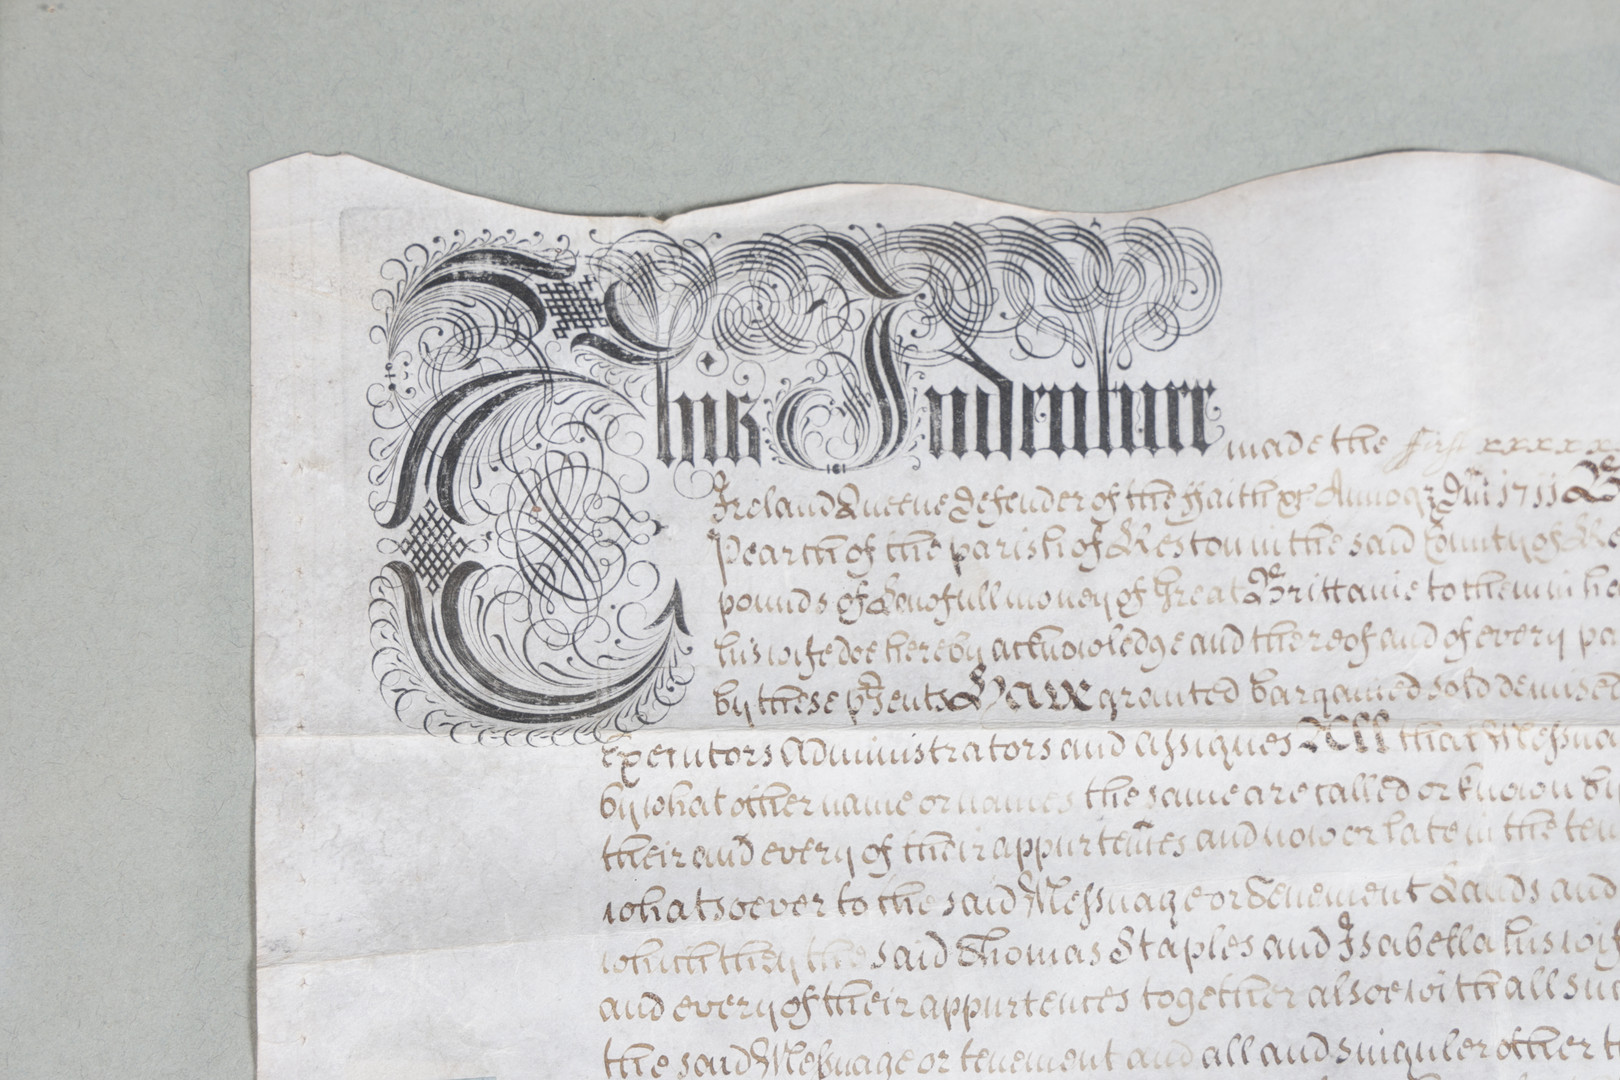 This Indenture made the first
Ireland Queene defender of the Faith &c Annoq Dm 1711
Pearth of the parish of Weston in the said County of
pounds of Lawfull money of Great Brittanie to them in
his wife doe hereby acknowledge and thereof and of every
by these psents Have granted bargained sold demised
Executors Administrators and assignes All that Messua
by what other name or names the same are called or known by
their and every of their appurtences and now or late in the
whatsoever to the said Messuage or Tenement Lands and
which they the said Thomas Staples and Isabella his
and every of their appurtences together alsoe with all
the said Messuage or tenement and all and singuler other